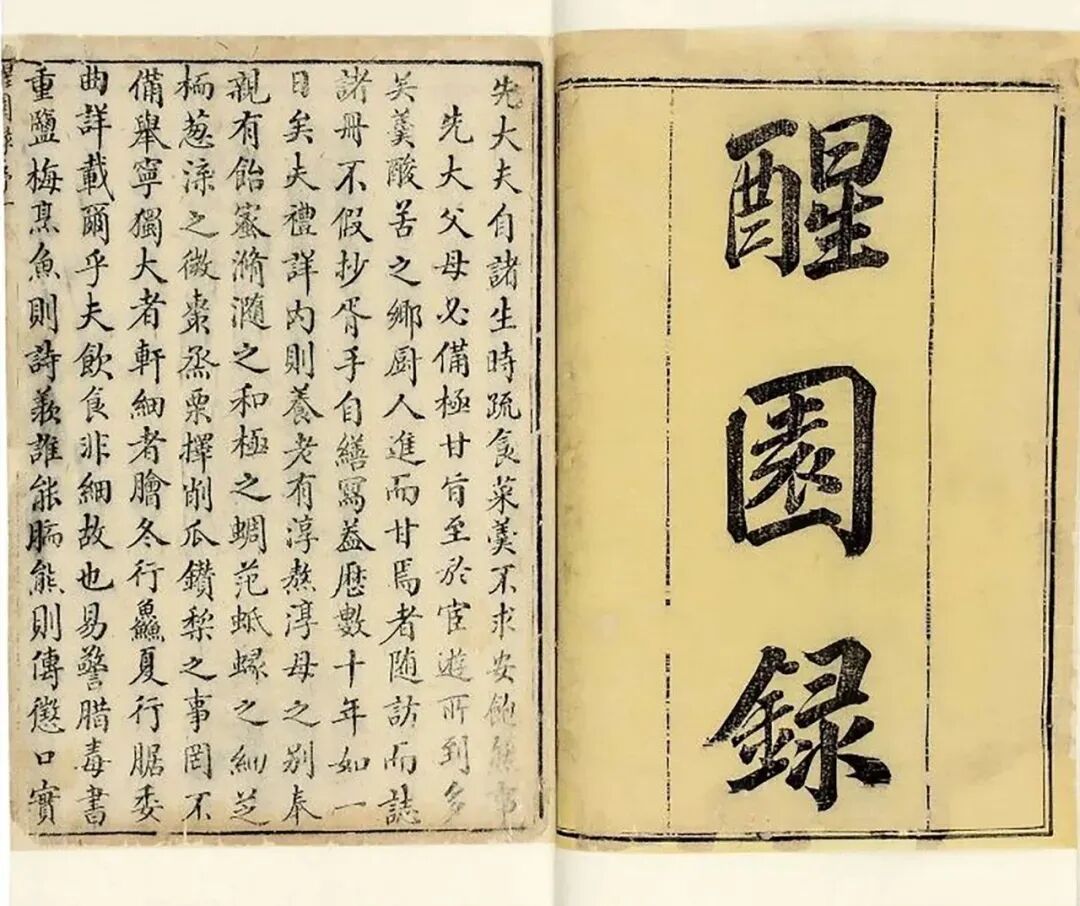 醒園録
先大夫自諸生時疏食菜羹不求安飽然事
先大父母必備極甘旨至於宦遊所到多
吳羹酸苦之鄉厨人進而甘焉者随訪而誌
諸冊不假抄胥手自繕寫葢歷數十年如一
日矣夫禮詳内則養老有淳熬淳母之别奉
親有飴蜜滫瀡之和極之蜩范蚳蝝之細芝
栭葱渿之微棗烝栗擇削瓜鑽梨之事罔不
備舉寧獨大者軒細者膾冬行鱻夏行腒委
曲詳載爾乎夫飲食非細故也易警腊毒書
重鹽梅烹魚則詩羨誰能胹熊則傳懲口實
醒園録序一